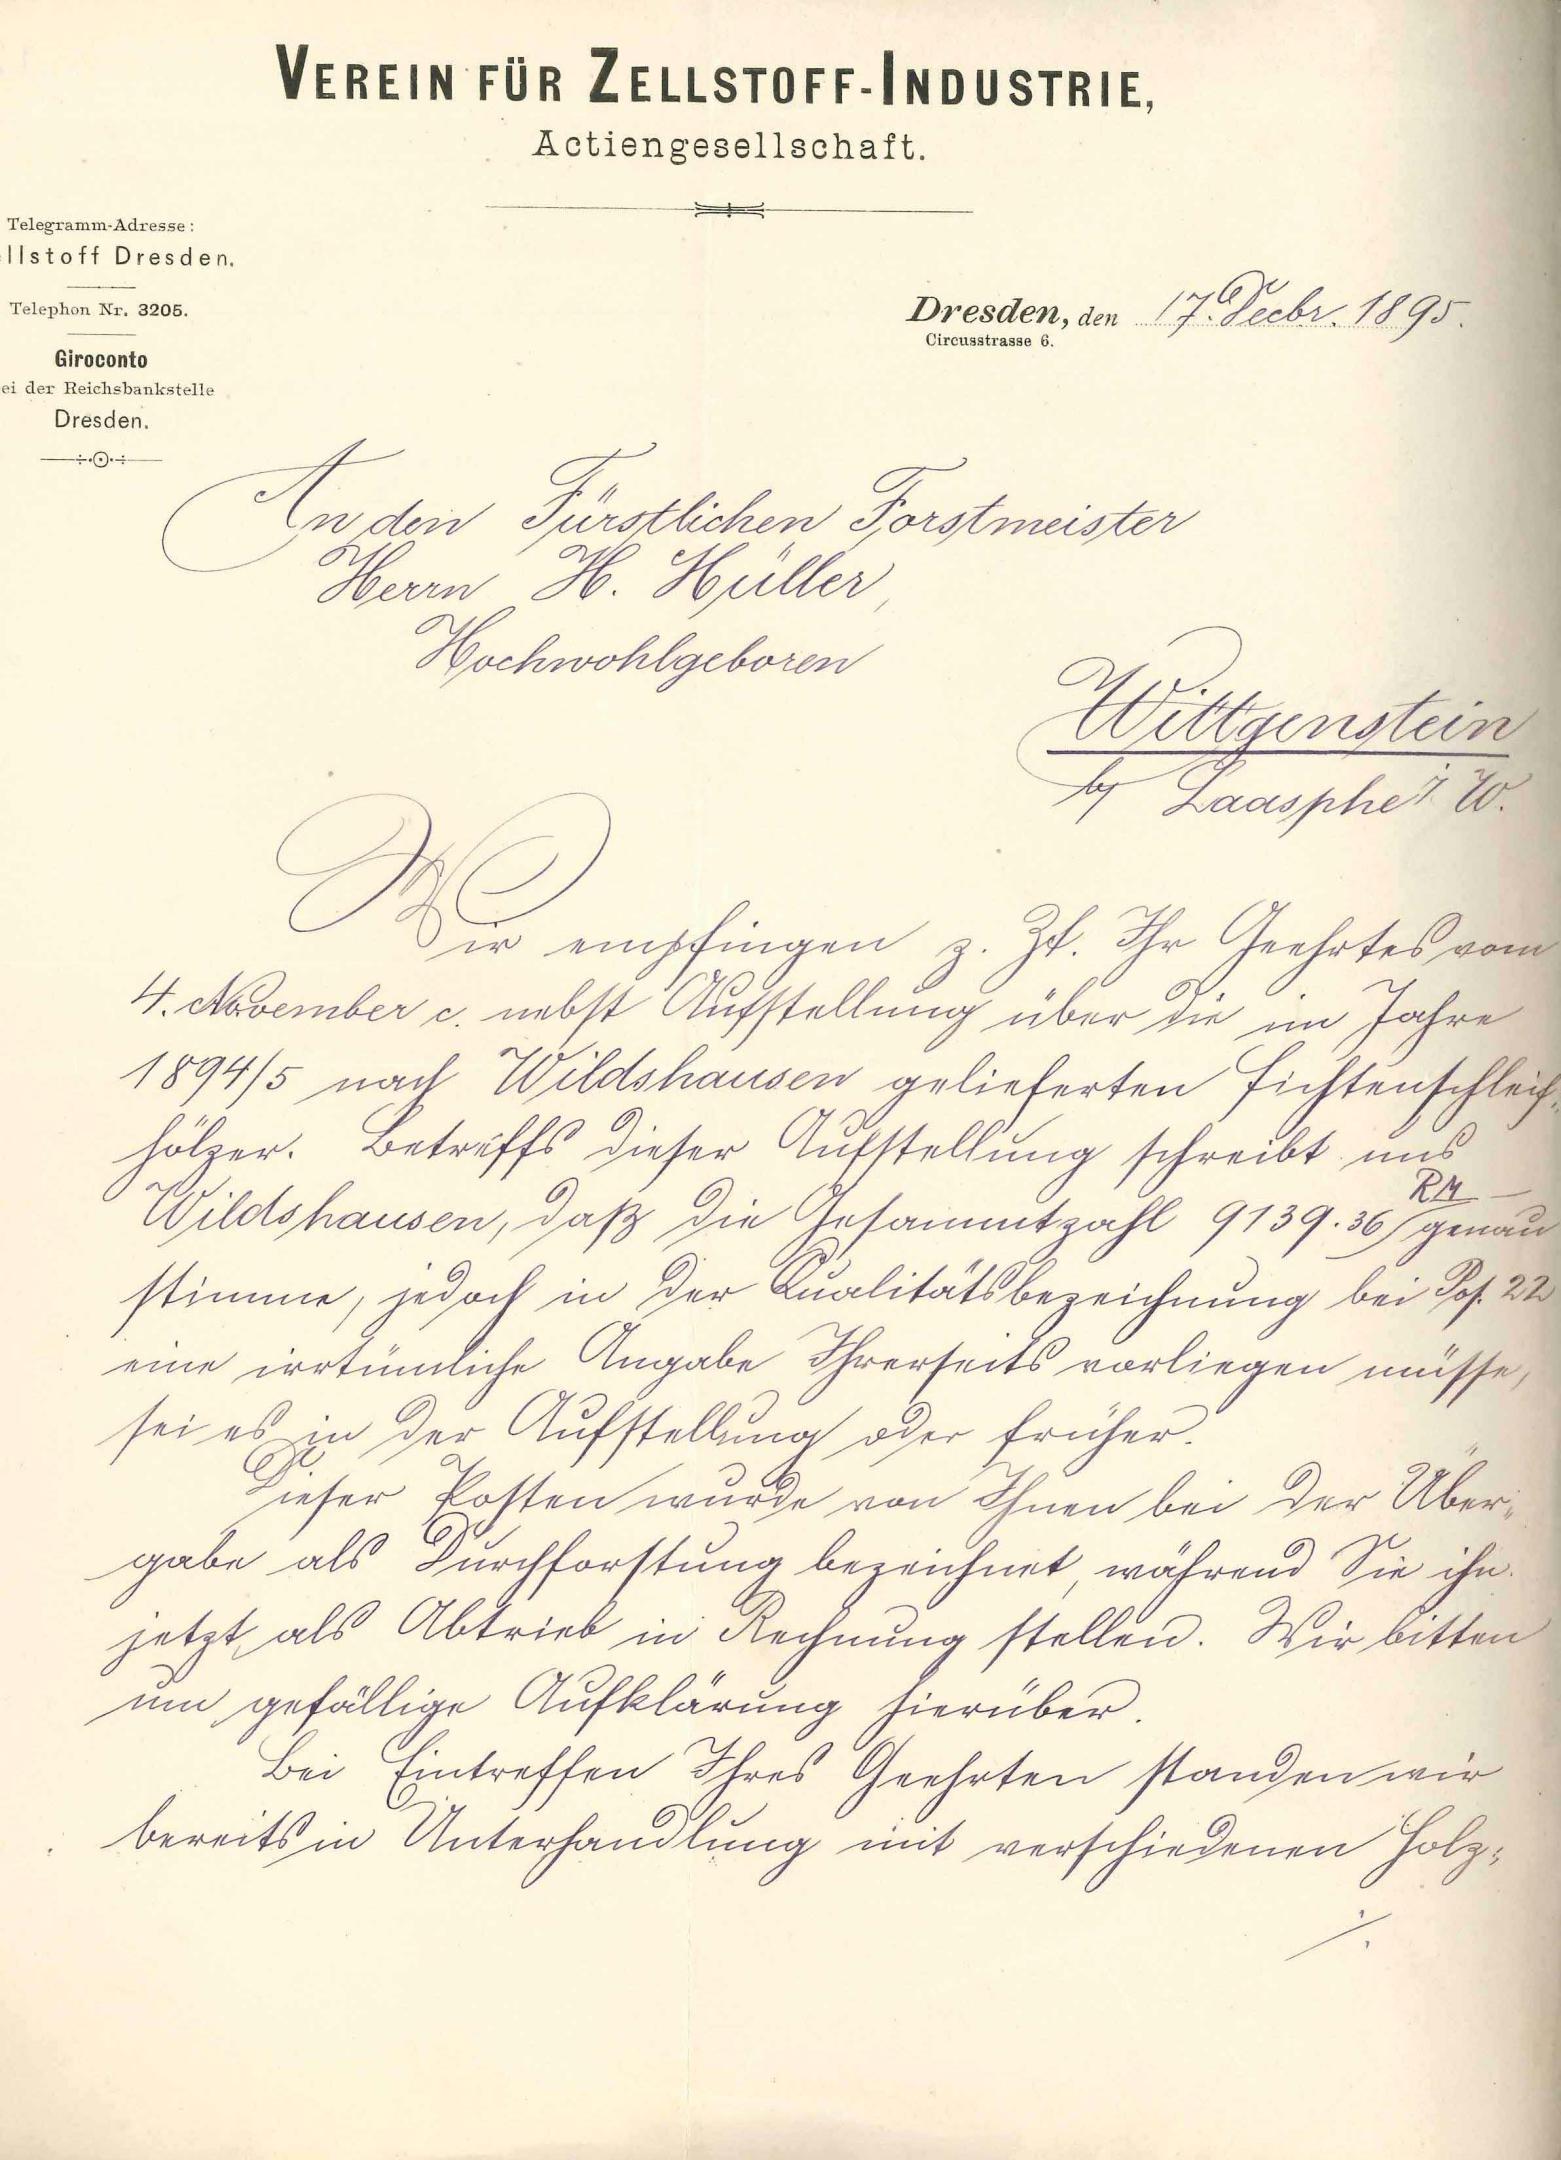 VEREIN FÜR ZELLSTOFF-INDUSTRIE,
Actiengesellschaft.
Telegramm-Adresse:
llstoff Dresden.
Telephon Nr. 3205.
Giroconto
ei der Reichsbankstelle
Dresden.
Dresden, den 17. Decbr. 1895.
Circusstrasse 6.
An den Fürstlichen Forstmeister
Herrn H. Hüller,
Hochwohlgeboren
Wittgenstein
b/ Laasphe i. W.
Wir empfingen z. Zt. Ihr Geehrtes vom
4. November c. nebst Aufstellung über die im Jahre
1894/5 nach Wildshausen gelieferten Fichtenschleif-
hölzer. Betreffs dieser Aufstellung schreibt uns
Wildshausen, daß die Gesammtzahl 9139.36 RM genau
stimme, jedoch in der Qualitätsbezeichnung bei Pos. 22
eine irrtümliche Angabe Ihrerseits vorliegen müsse,
sei es in der Aufstellung oder früher.
Dieser Posten wurde von Ihnen bei der Über-
gabe als Durchforstung bezeichnet, während Sie ihn
jetzt als Abtrieb in Rechnung stellen. Wir bitten
um gefällige Aufklärung hierüber.
Bei Eintreffen Ihres Geehrten standen wir
bereits in Unterhandlung mit verschiedenen Holz-
./.